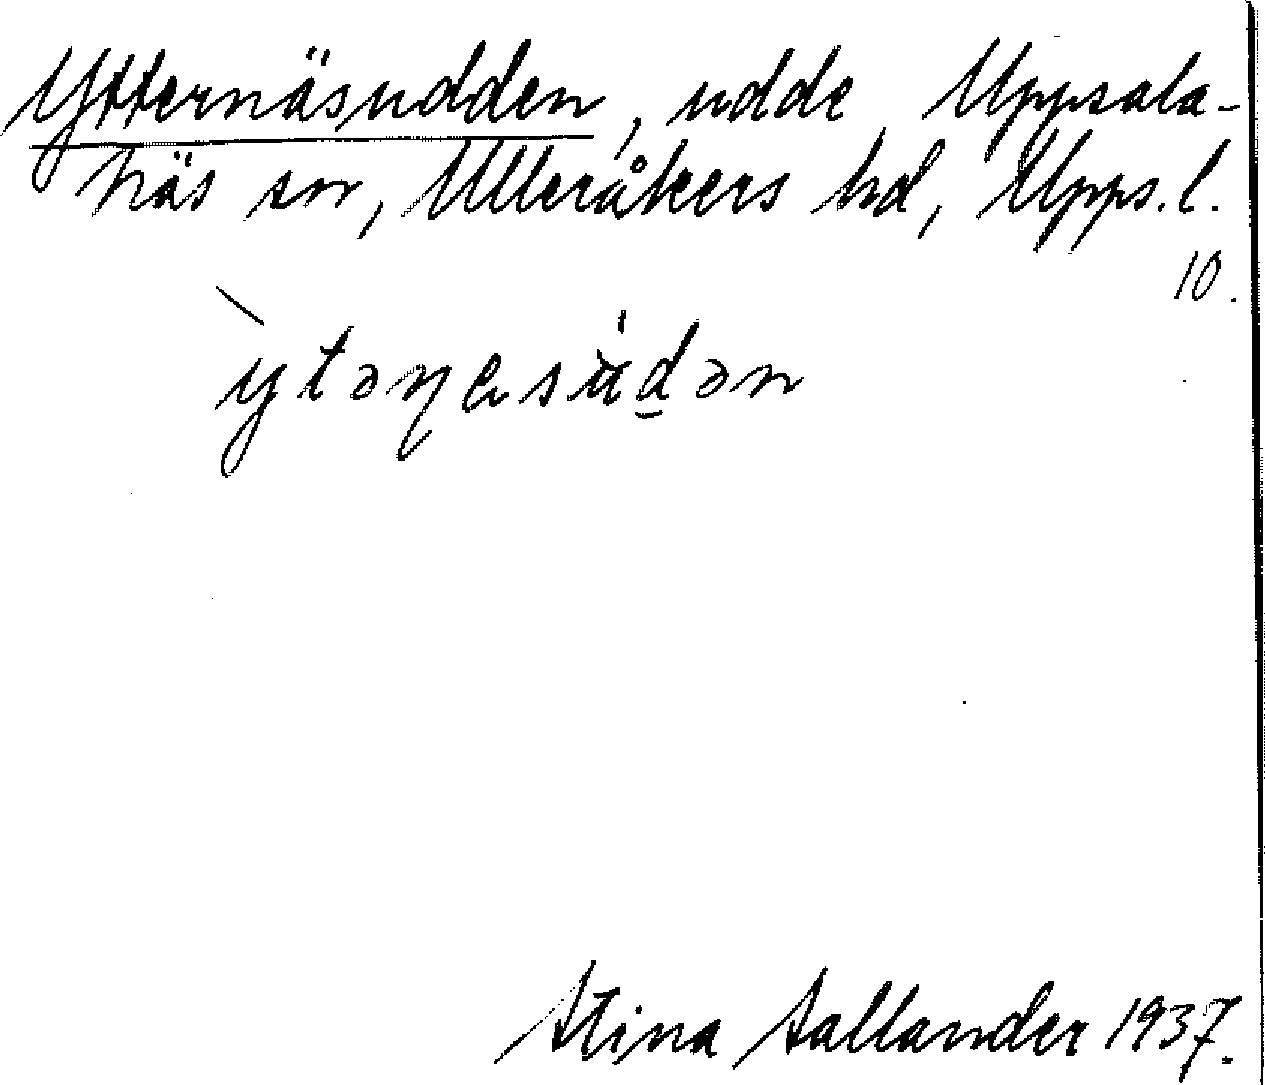 Ytternäsudden, udde, Uppsala-
näs sn, Ulleråkers hd, Upps. l.
10.
Stina Sallander 1937.